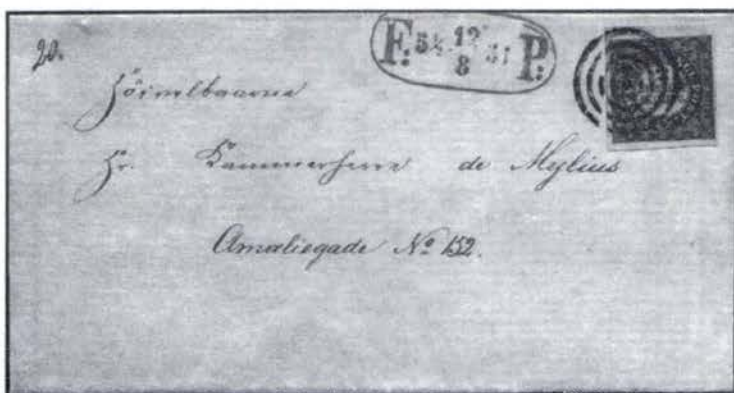 F: 12 8 51 P:
20.
Höivelbaarne
Hr. Kammerherre de Mylius
Amaliegade Nº 152.